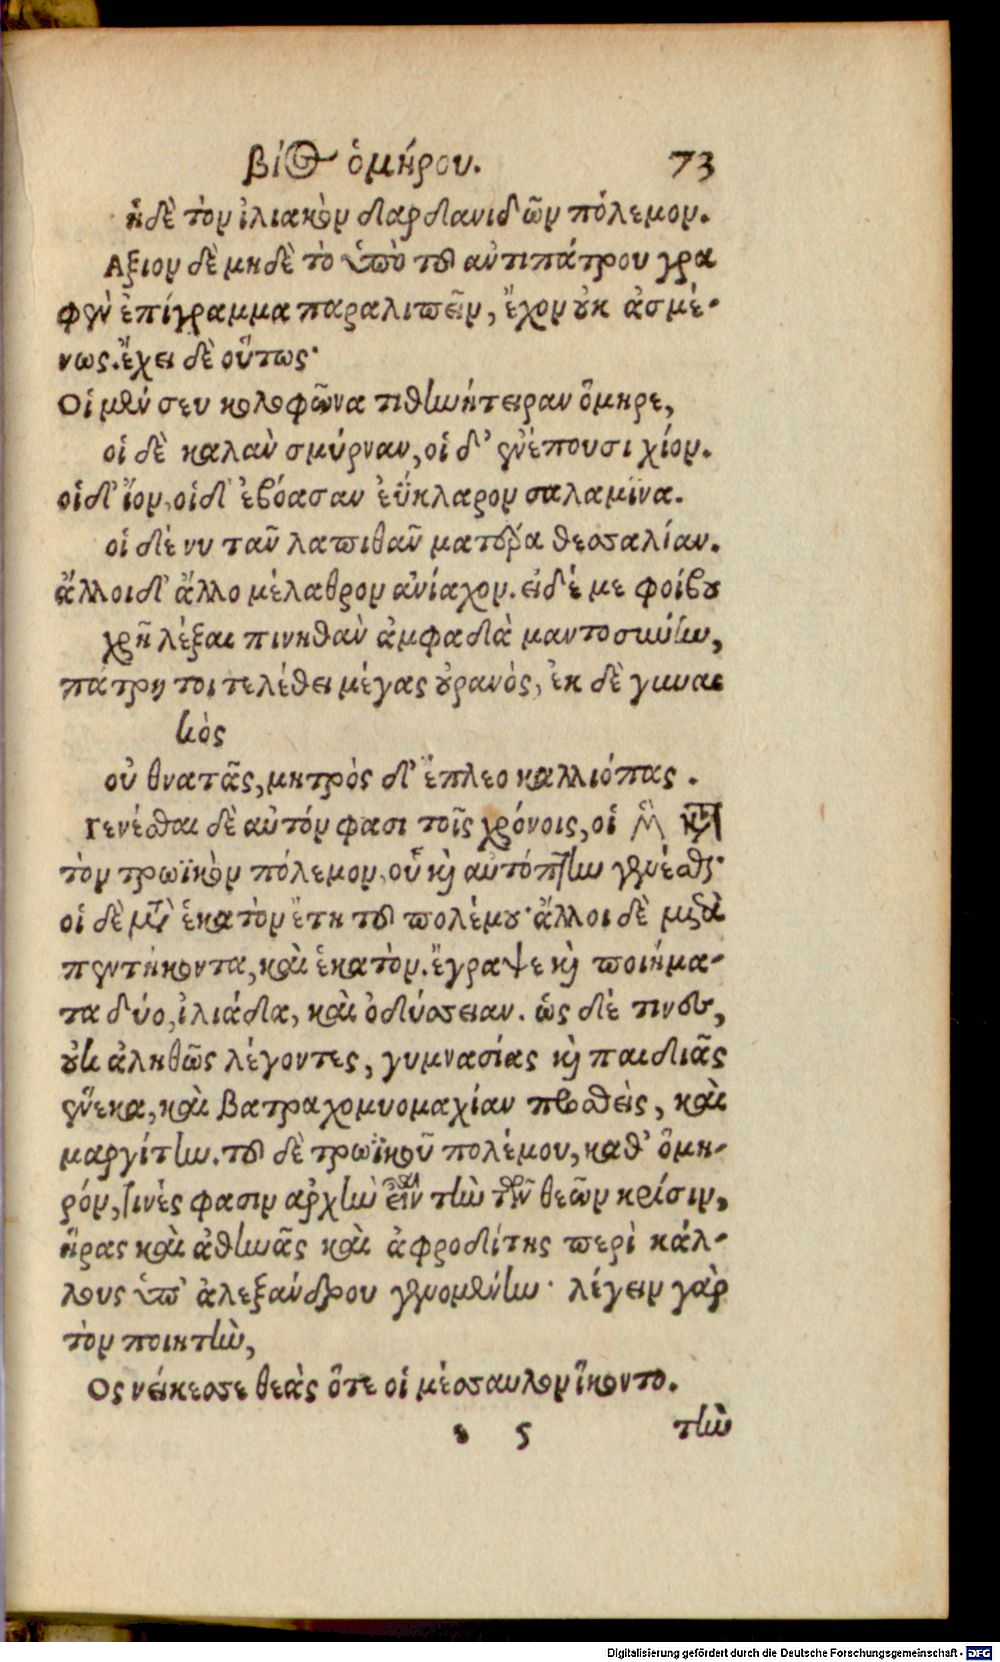 βίος ὁμήρου. 73
ἠδὲ τὸν ἰλιακὸν δαρδανιδῶν πόλεμον.
Αξιον δὲ μηδὲ τὸ ὑπὸ τοῦ αντιπάτρου γρα
φὲν ἐπίγραμμα παραλιπεῖν, ἔχον οὐκ ἀσμέ-
νως. ἔχει δὲ οὕτως·
Οἱ μέν σευ κολοφῶνα τιθηνήτειραν ὅμηρε,
οἱ δὲ καλὰν σμύρναν, οἱ δ' ἐνέπουσι χίον.
οἱ δ' ἴον, οἱ δ' ἐβόασαν ἐΰκλαρον σαλαμῖνα.
οἱ δέ νυ τᾶν λαπιθᾶν ματέρα θεσσαλίαν.
ἄλλοι δ' ἄλλο μέλαθρον ἀνίαχον. εἰ δέ με φοίβου
χρῆ λέξαι πινηθὰν ἀμφαδὰ μαντοσύνην,
πάτρη τοι τελέθει μέγας οὐρανὸς, ἐκ δὲ γυναι
κὸς
οὐ θνατᾶς, μητρὸς δ' ἔπλεο καλλιόπας.
Γενέσθαι δὲ αὐτόν φασι τοῖς χρόνοις, οἱ μὲν κατὰ
τὸν τρωϊκὸν πόλεμον, οὗ καὶ αὐτόπτην γενέσθαι·
οἱ δὲ μετὰ ἑκατὸν ἔτη τοῦ πολέμου· ἄλλοι δὲ μετὰ
πεντήκοντα, καὶ ἑκατὸν. ἔγραψε καὶ ποιήμα-
τα δύο, ἰλιάδα, καὶ ὀδύσσειαν. ὡς δέ τινες,
οὐκ ἀληθῶς λέγοντες, γυμνασίας καὶ παιδιᾶς
ἕνεκα, καὶ Βατραχομυομαχίαν προσθεὶς, καὶ
μαργίτην. τοῦ δὲ τρωϊκοῦ πολέμου, καθ' ὅμη-
ρόν, τινὲς φασιν αρχὴν εἶναι τὴν τῶν θεῶν κρίσιν,
ἥρας καὶ ἀθηνᾶς καὶ ἀφροδίτης περὶ κάλ-
λους ὑπ' ἀλεξάνδρου γενομένην· λέγειν γὰρ
τὸν ποιητὴν,
Ος νείκεσσε θεὰς ὅτε οἱ μέσσαυλον ἵκοντο.
ε 5 τὴν
Digitalisierung gefördert durch die Deutsche Forschungsgemeinschaft - DFG